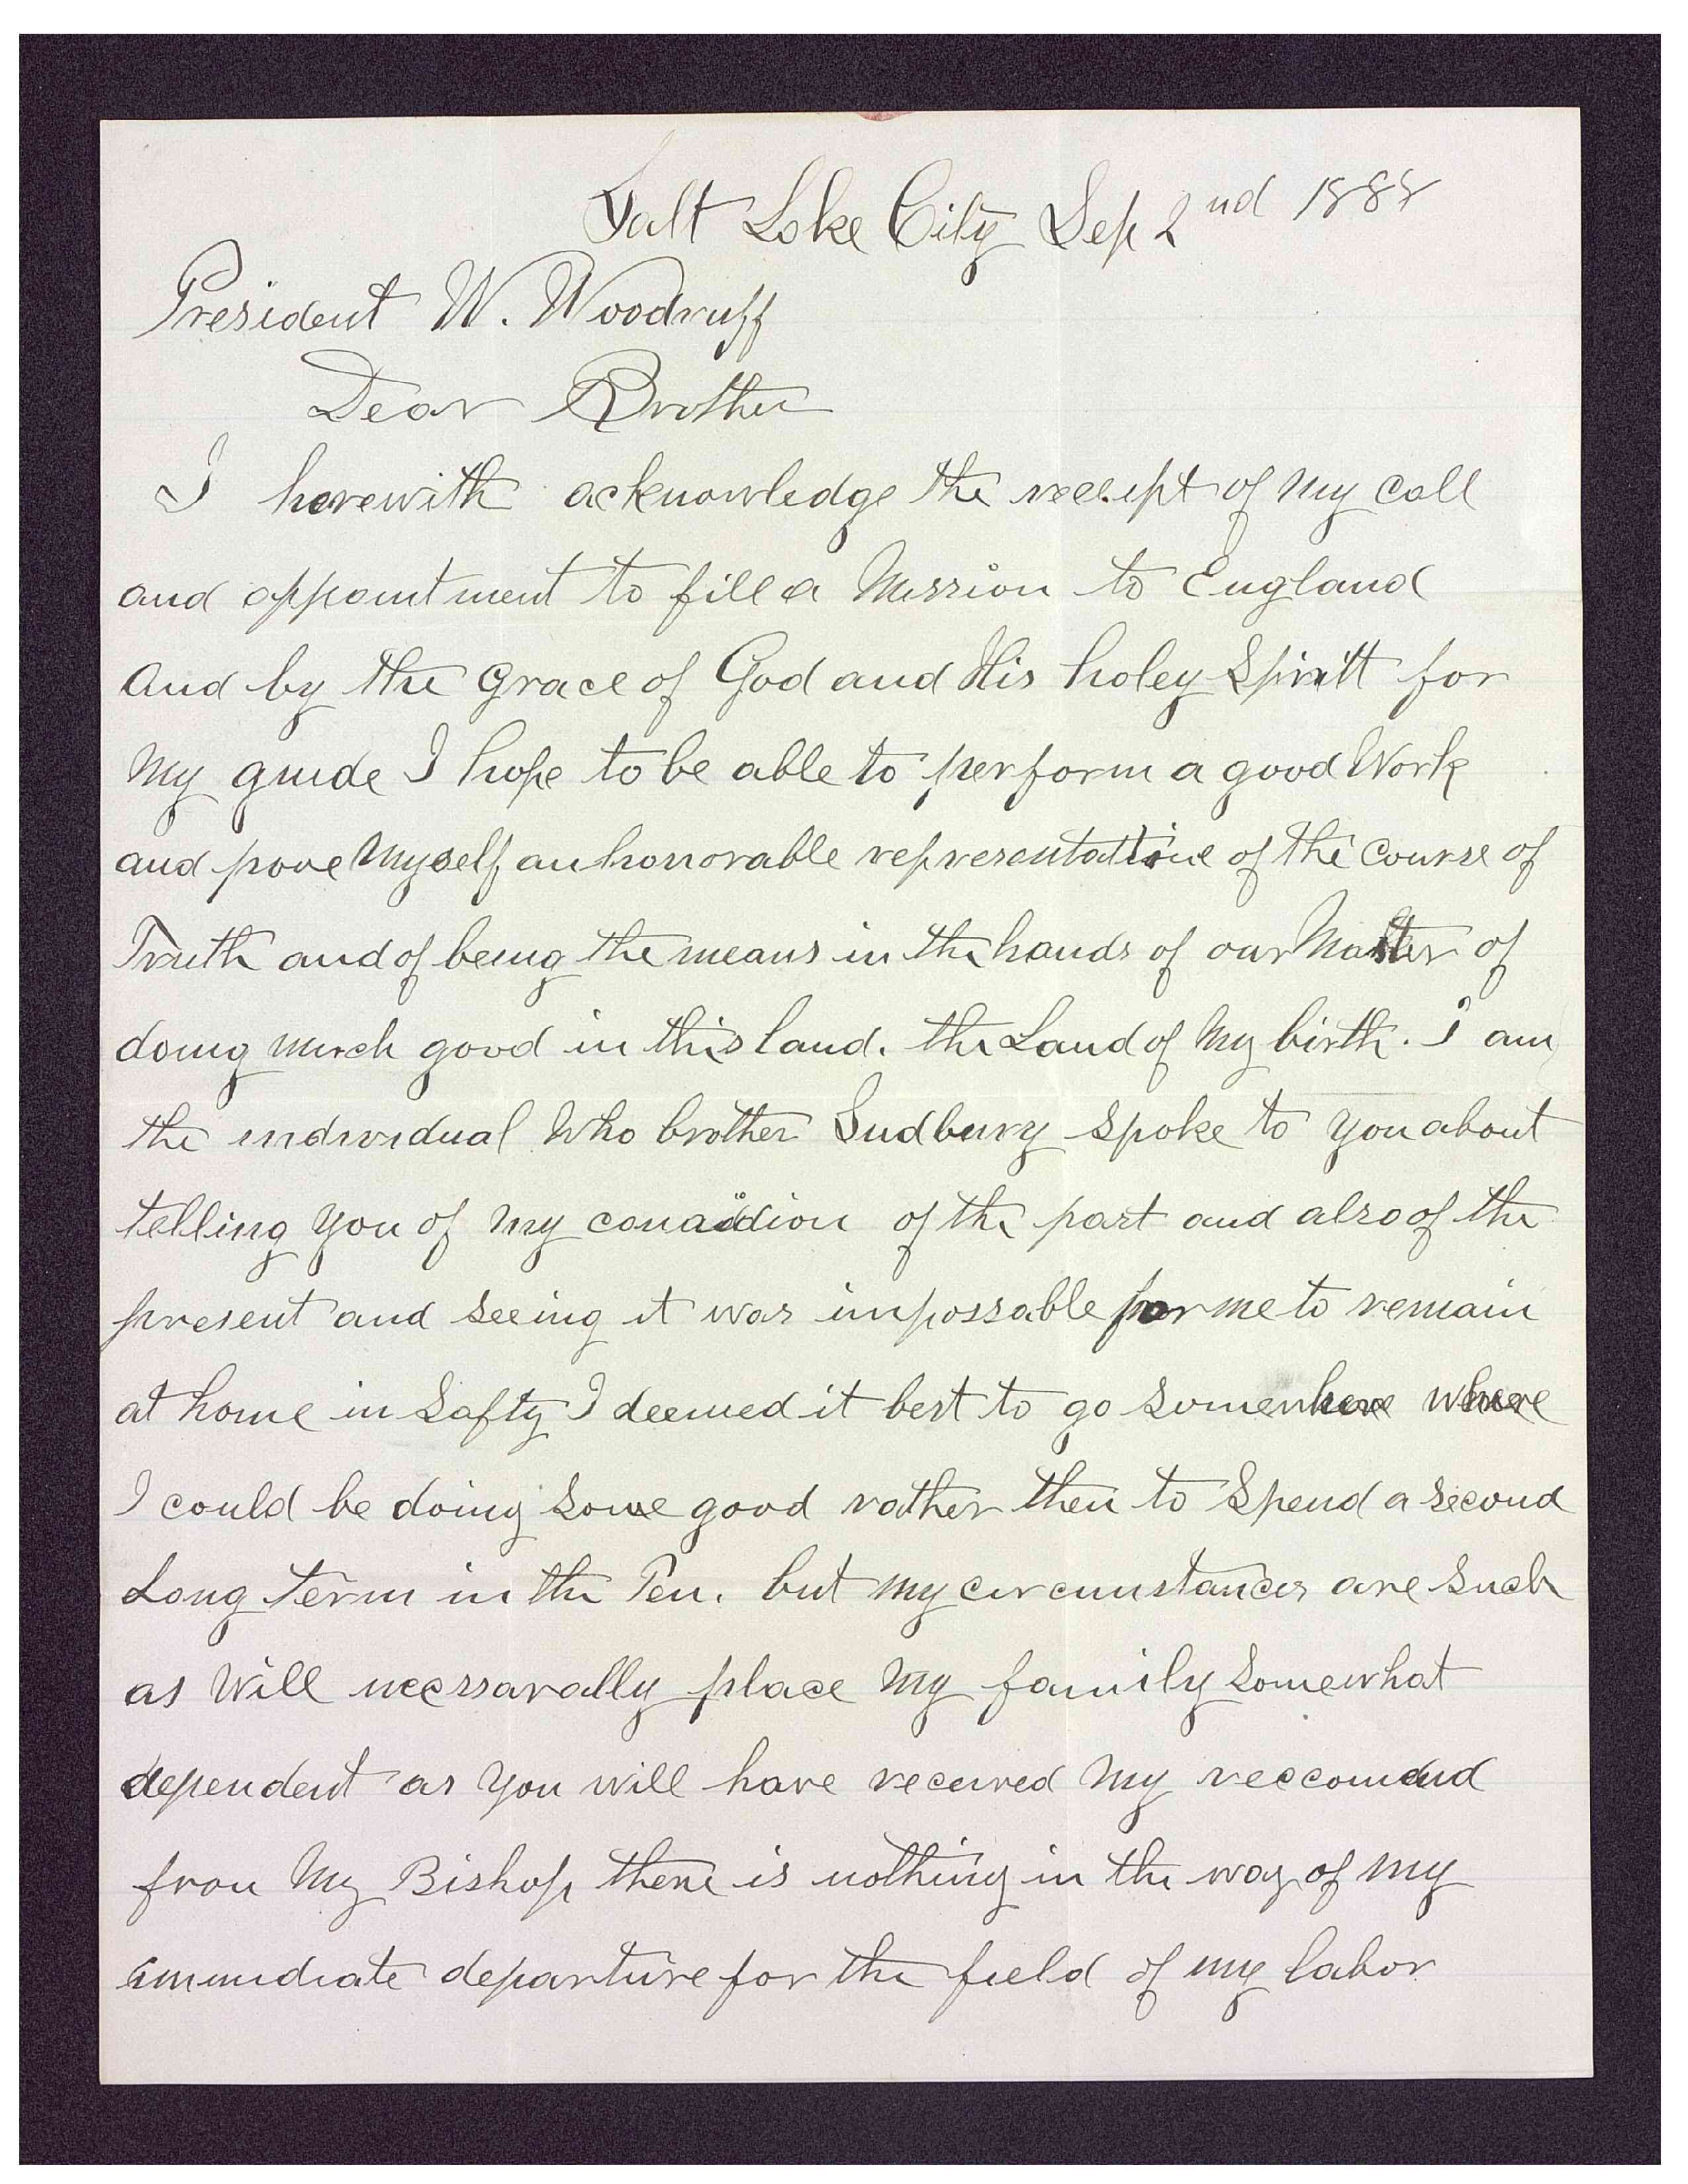 Salt Lake City Sep 2nd 1888
President W. Woodruff
Dear Brother
I herewith acknowledge the receipt of my call
and appointment to fill a Mission to England
And by the grace of God and His holey Spiritt for
My guide I hope to be able to perform a good Work
and prove Myself an honorable representative of the Course of
Truth and of being the means in the hands of our Master of
doing much good in this land. the Land of My birth. I am
the individual Who brother Sudbury spoke to you about
telling you of my of the past and also of the
present and seeing it was impossable for me to remain
at home in Safty I deemed it best to go somewhere where
I could be doing some good rather then to Spend a second
Long term in the Pen. but my circumstances are such
as Will necssarally place My family Somewhat
dependent as you will have received My reccomend
from My Bishop there is nothing in the way of my
immediate departure for the field of my labor